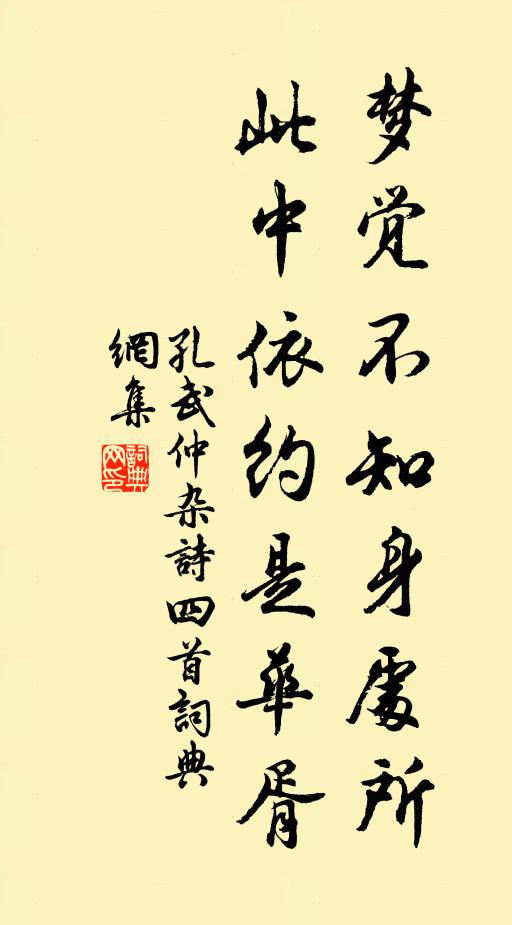 梦觉不知身處所
此中依約是華胥
孔武仲杂詩四首詞典
網集
詞典
网印